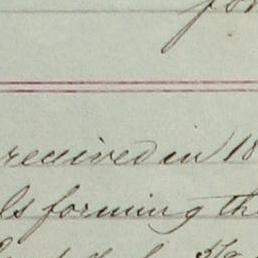 for
received in 18
ls forming th